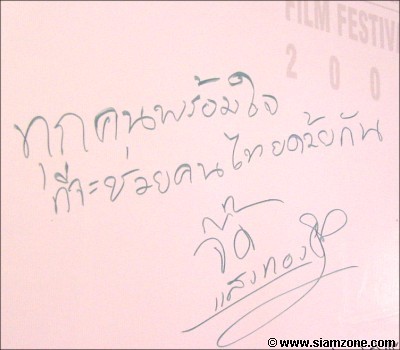 FILM FESTIV
200
ทุกคนพร้อมใจ
ที่จะช่วยคนไทยด้วยกัน
จี๊ด
แสงทอง
© www.siamzone.com